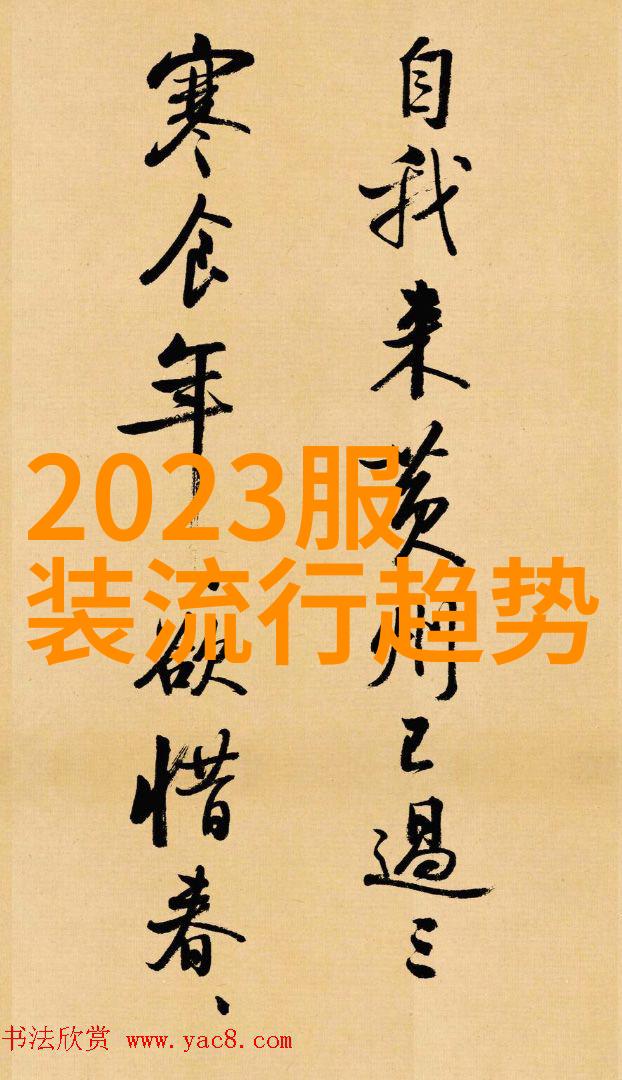 自我来黄州已過三
寒食年欲惜春、
2023服
装流行趋势
书法欣赏 www.yac8.com